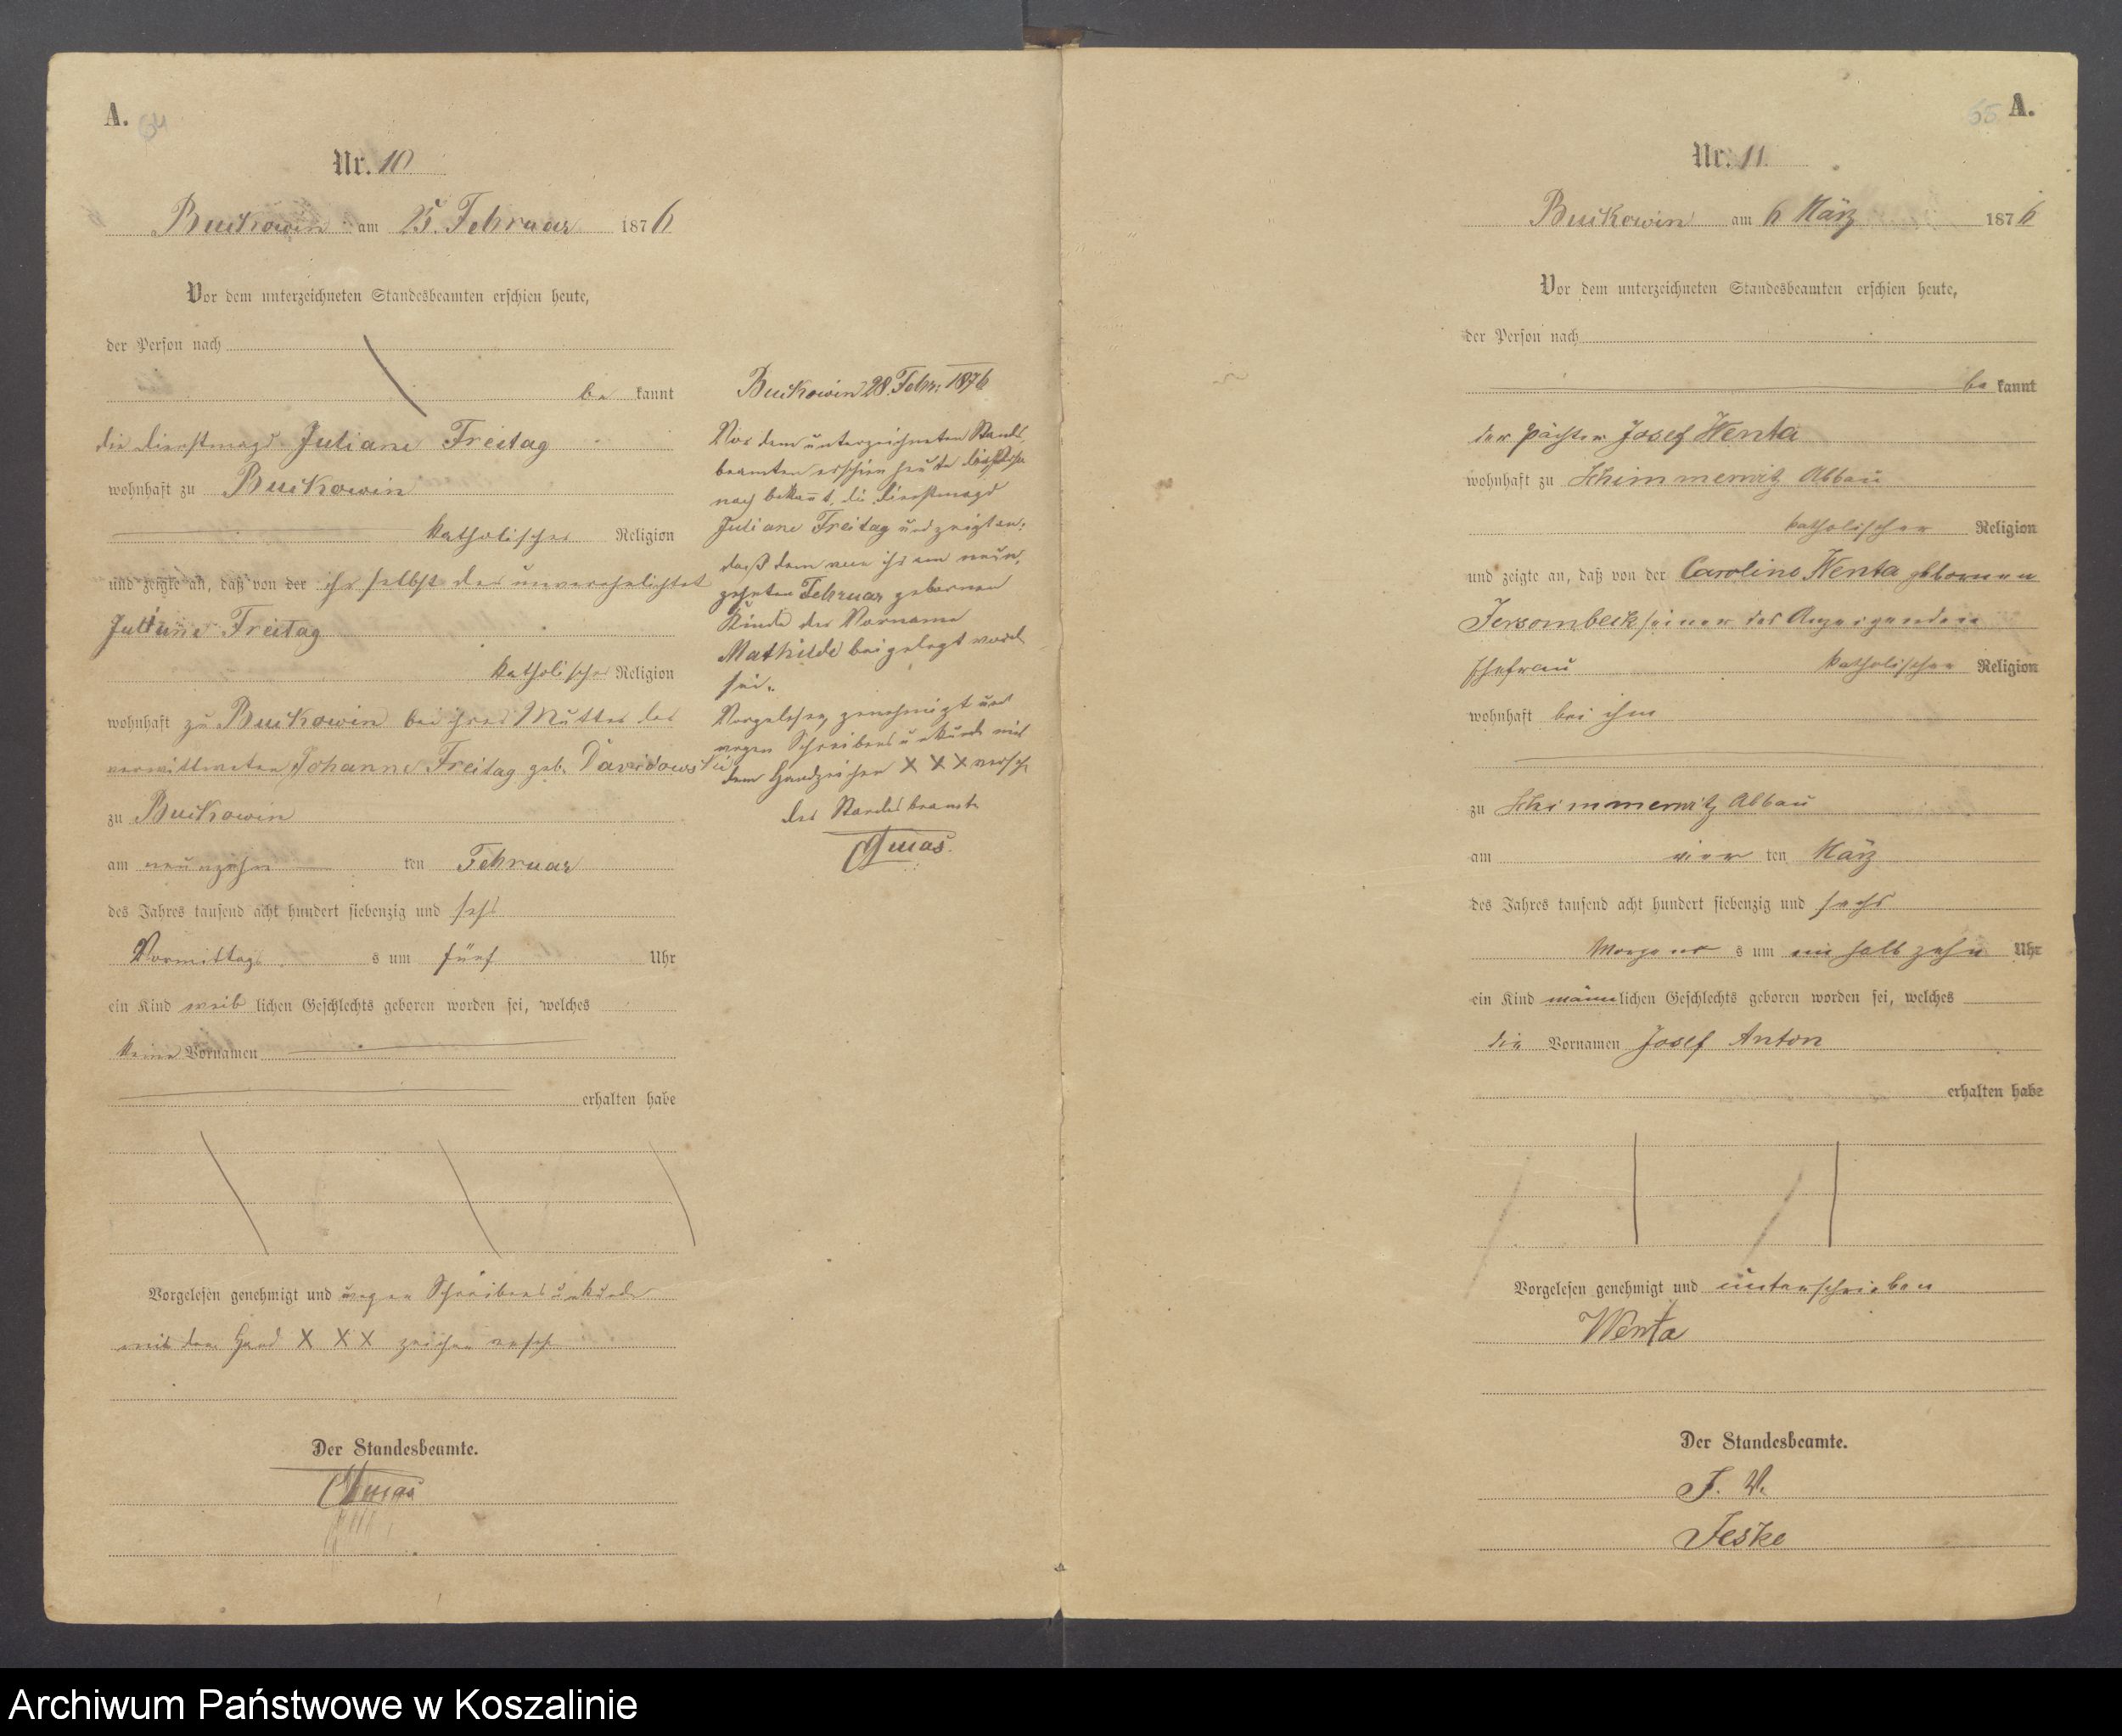 A. 64
Nr. 10
Buckowin am 25. Februar 1876
Vor dem unterzeichneten Standesbeamten erschien heute,
der Person nach
be kannt
die Dienstmagd Juliane Freitag
wohnhaft zu Buckowin
katholischer Religion
und zeigte an, daß von der ihr selbst der unverehelichte
Juliane Freitag
katholischer Religion
wohnhaft zu Buckowin bei ihrer Mutter der
verwittweten Johanne Freitag geb. Davidowski
zu Buckowin
am neunzehn ten Februar
des Jahres tausend acht hundert siebenzig und sechs
Vormittags s um fünf Uhr
ein Kind weib lichen Geschlechts geboren worden sei, welches
keine Vornamen
erhalten habe
Vorgelesen genehmigt und wegen Schreibensunkunde
mit dem Hand X X X zeichen versch
Der Standesbeamte.
Buckowin 28. Febr. 1876
Vor dem unterzeichneten Stands
beamten erschien heute
nach bekannt, die Dienstmagd
Juliane Freitag und zeigt an:
daß dem von ihr am neun
zehnten Februar gebornen
Kinde der Vorname
Mathilde beigelegt word
sei.
Vorgelesen, genehmigt und
wegen Schreibensunkunde mit
dem Handzeichen X X X versch
der Standesbeamte
55 A.
Nr. 11
Buckowin am 6 März 1876
Vor dem unterzeichneten Standesbeamten erschien heute,
der Person nach
be kannt
der Pächter Josef Wenta
wohnhaft zu Schimmerwitz Abbau
katholischer Religion
und zeigte an, daß von der Caroline Wenta gebornen
Jersombeck seiner des Anzeigenden
Ehefrau katholischer Religion
wohnhaft bei ihm
zu Schimmerwitz Abbau
am vier ten März
des Jahres tausend acht hundert siebenzig und sechs
Morgens s um ein halb zehn Uhr
ein Kind männlichen Geschlechts geboren worden sei, welches
die Vornamen Josef Anton
erhalten habe
Vorgelesen genehmigt und unterschrieben
Wenta
Der Standesbeamte.
J. V.
Jeske
Archiwum Państwowe w Koszalinie